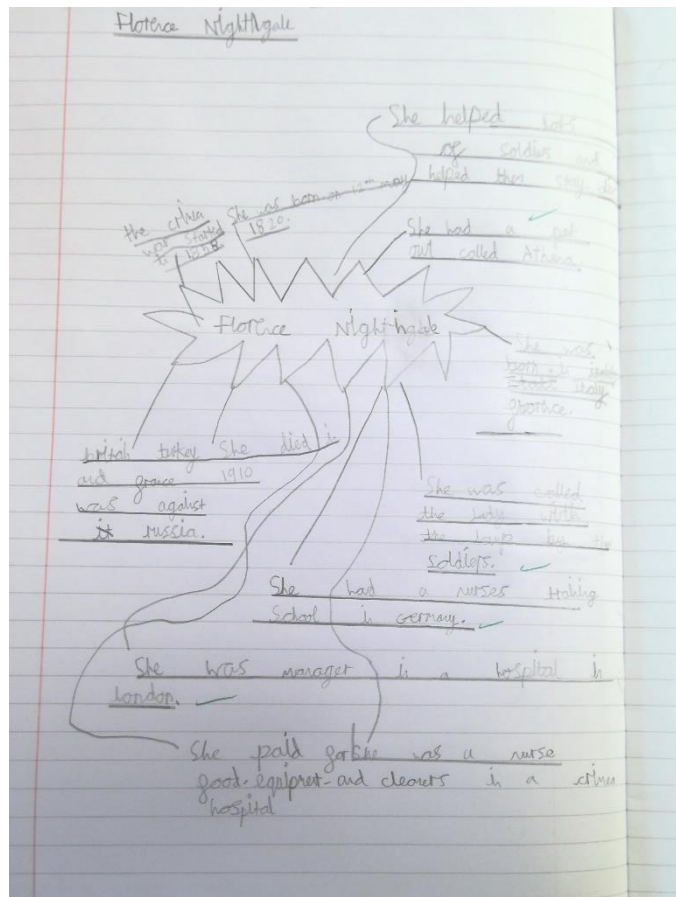 Florence Nightingale
She helped lots
of soldies and
helped them stay
She was born on 12th may
1820.
the criva
war started
She had a pet
owl called Athena.
Florence Nightingale
She was
born in
italy
glornce.
british turkey
and grece
was against
it russia.
She died in
1910
She was called
the lady with
the lamp by the
soldiers.
She had a nurses traing
School in Germany.
She was manager in a hospital in
london.
She paid for
good equipmet and cleaners
She was a nurse
in a crimea
hospital